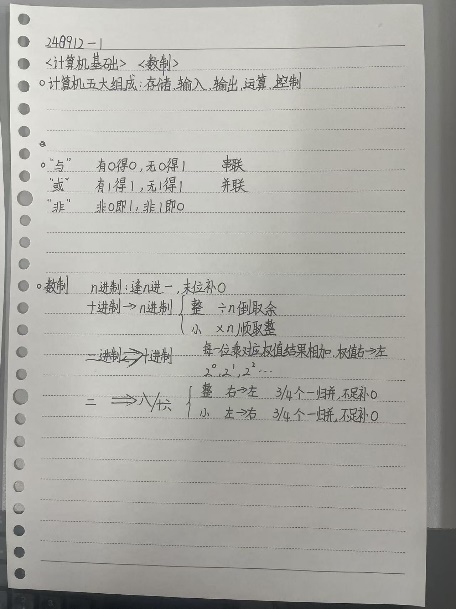 240912-1
<计算机基础> <数制>
○计算机五大组成:存储、输入、输出、运算、控制
○"与" 有0得0,无0得1 串联
"或" 有1得1,无1得1 并联
"非" 非0即1,非1即0
○数制 n进制:逢n进一,末位补0
十进制→n进制 { 整 ÷n倒取余
小 ×n顺取整
二进制⇒十进制 每一位乘对应权值结果相加,权值右→左
2⁰,2¹,2²…
二 ⇒八/十六 { 整 右→左 3/4个一归并,不足补0
小 左→右 3/4个一归并,不足补0